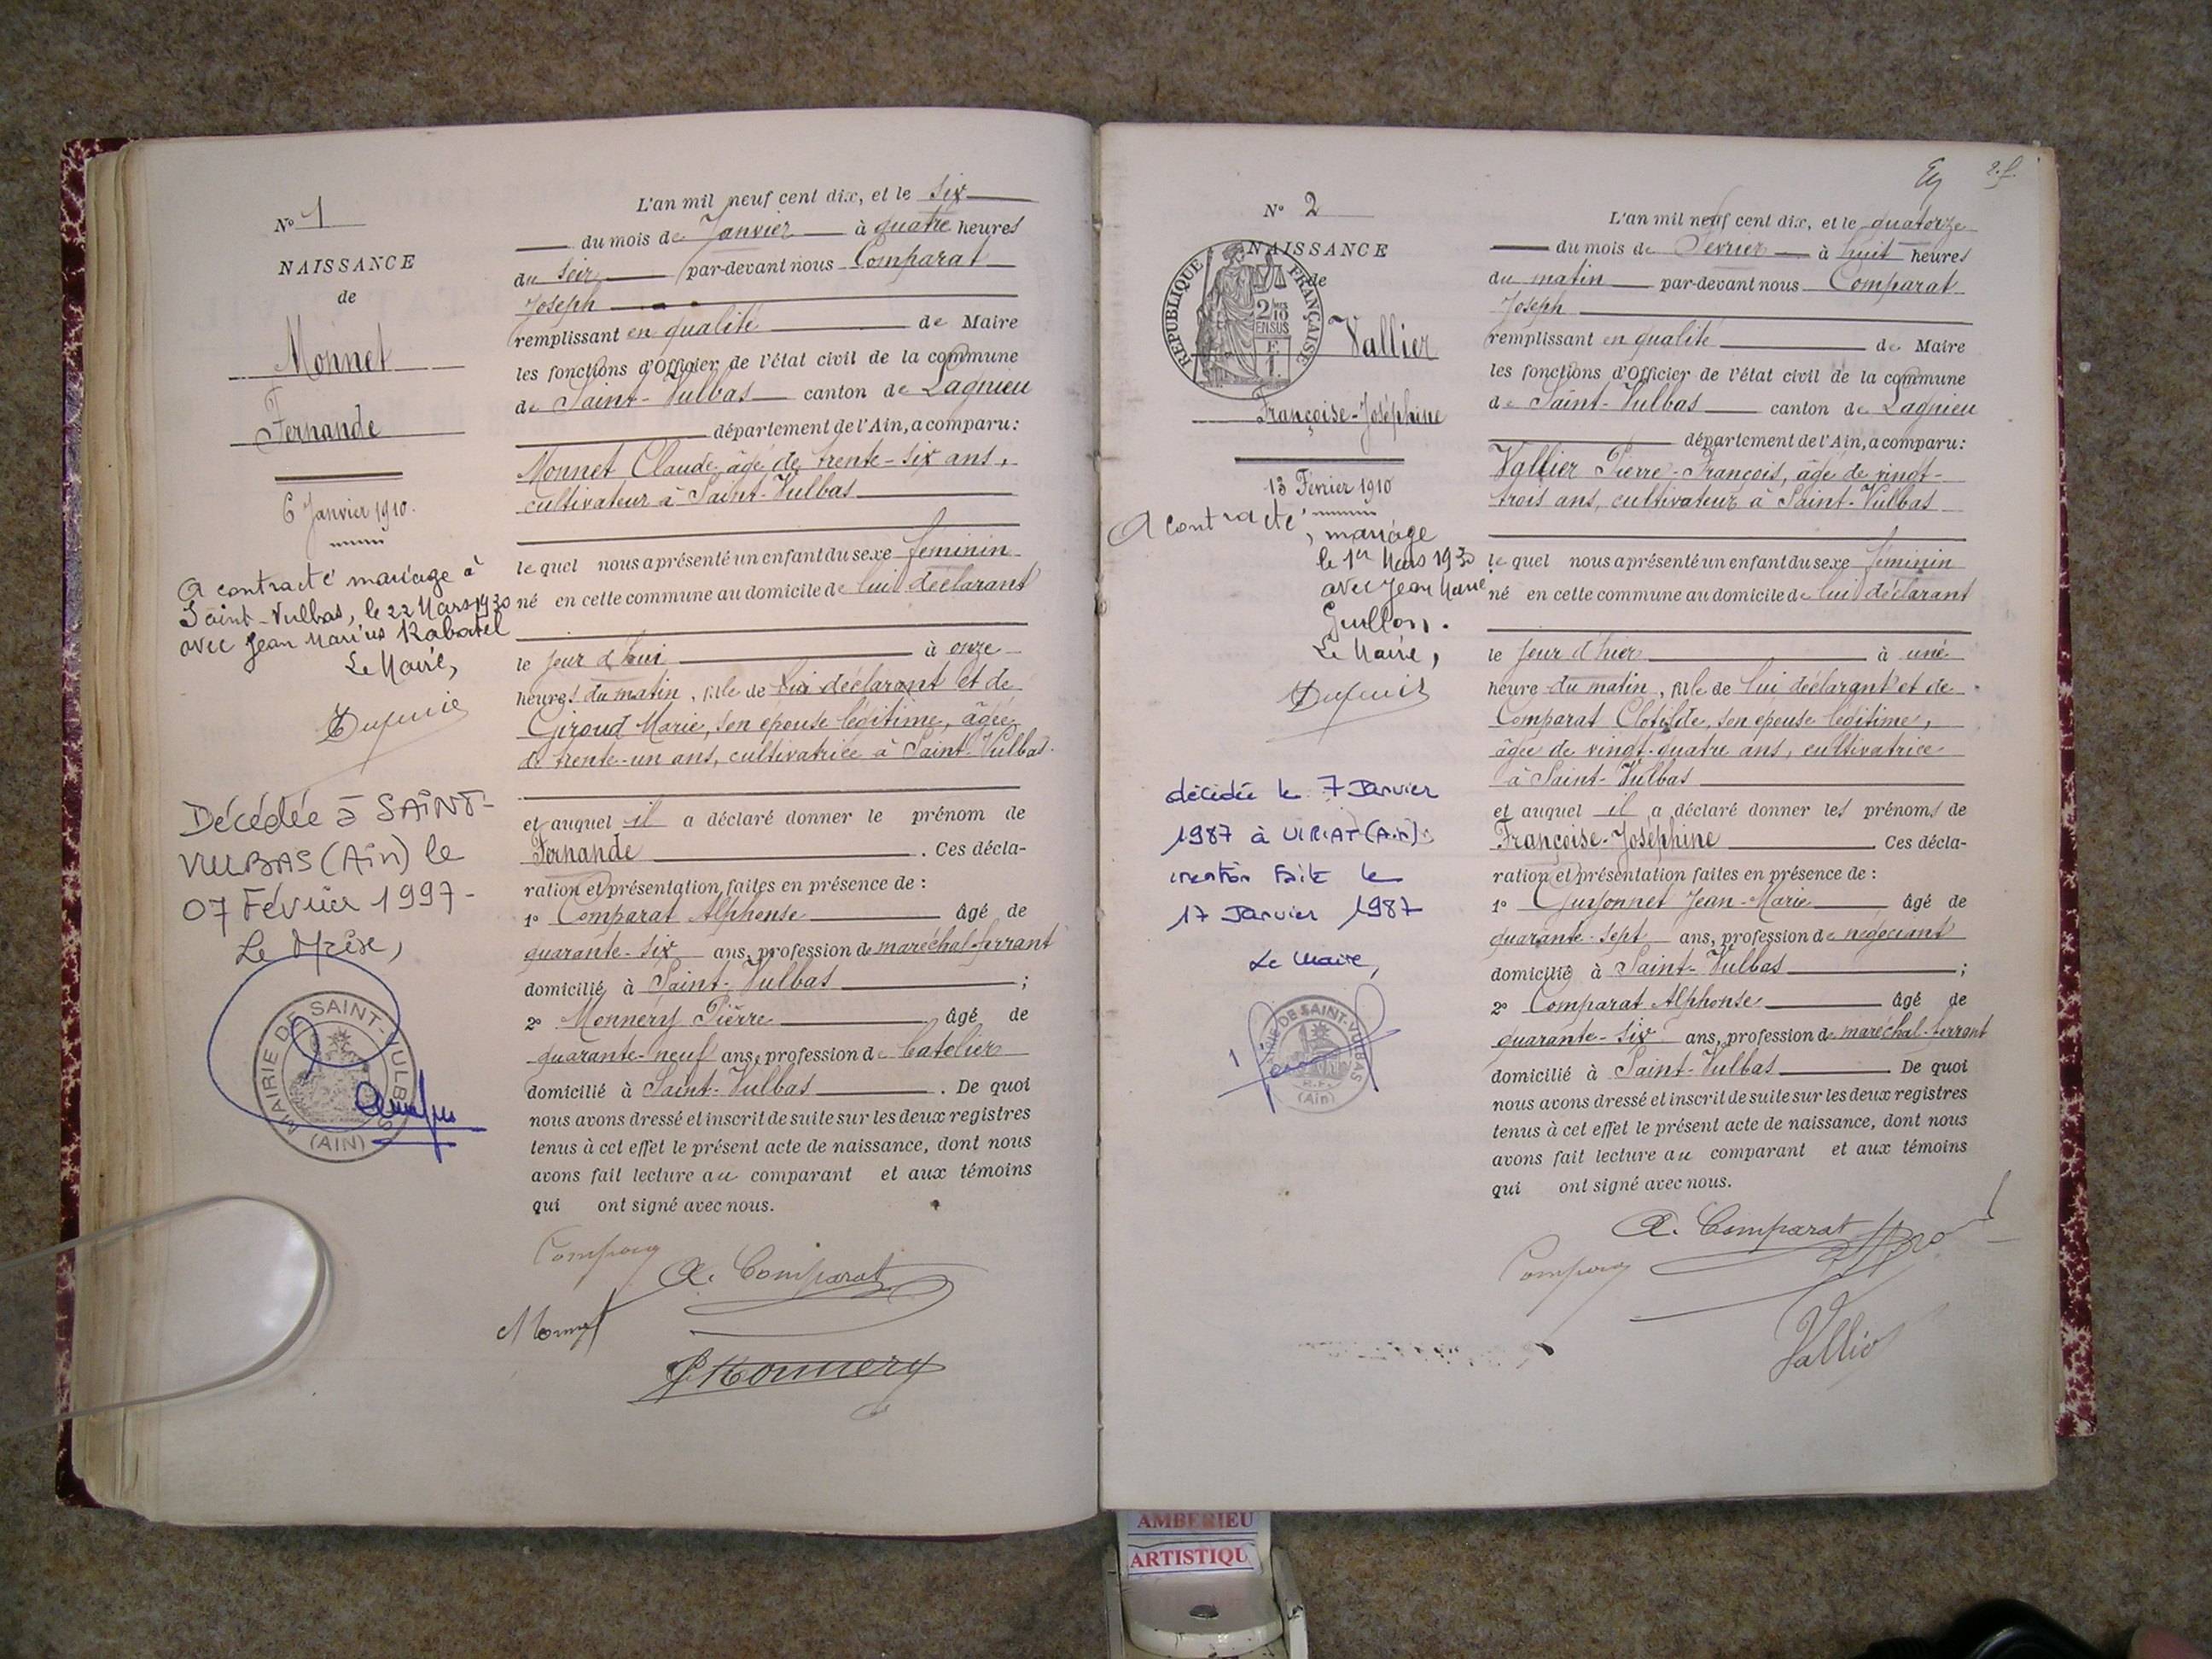 N° 1
NAISSANCE
de
Monnet
Fernande
6 Janvier 1910.
A contracté mariage à
Saint-Vulbas, le 22 Mars 1930
avec Jean Marius Rabatel
Le Maire,
Décédée à SAINT-
VULBAS (Ain) le
07 Février 1997-
Le Maire,
MAIRIE DE SAINT-VULBAS
(AIN)
L'an mil neuf cent dix, et le six
du mois de Janvier à quatre heures
du soir par-devant nous Comparat
Joseph
remplissant en qualité de Maire
les fonctions d'Officier de l'état civil de la commune
de Saint-Vulbas canton de Lagnieu
département de l'Ain, a comparu:
Monnet Claude, âgé de trente-six ans,
cultivateur à Saint-Vulbas
le quel nous a présenté un enfant du sexe féminin
né en cette commune au domicile de lui déclarant
le jour d'hui à onze
heures du matin, fille de lui déclarant et de
Giroud Marie, son épouse légitime, âgée
de trente-un ans, cultivatrice à Saint-Vulbas.
et auquel il a déclaré donner le prénom de
Fernande. Ces décla-
ration et présentation faites en présence de :
1° Comparat Alphonse âgé de
quarante-six ans, profession de maréchal-ferrant
domicilié à Saint-Vulbas ;
2° Monnery Pierre âgé de
quarante-neuf ans, profession de batelier
domicilié à Saint-Vulbas. De quoi
nous avons dressé et inscrit de suite sur les deux registres
tenus à cet effet le présent acte de naissance, dont nous
avons fait lecture au comparant et aux témoins
qui ont signé avec nous.
A. Comparat
Monnet
P Monnery
2. f.
N° 2
NAISSANCE
de
REPUBLIQUE FRANÇAISE
2/10
EN SUS
Vallier
Françoise-Joséphine
13 Février 1910
A contracté
mariage
le 1er Mars 1930
avec Jean Marie
Guillon.
Le Maire,
décédée le 7 Janvier
1987 à VIRIAT (Ain).
mention faite le
17 Janvier 1987
Le Maire,
MAIRIE DE SAINT-VULBAS
R.F.
(Ain)
L'an mil neuf cent dix, et le quatorze
du mois de Février à huit heures
du matin par-devant nous Comparat
Joseph
remplissant en qualité de Maire
les fonctions d'Officier de l'état civil de la commune
de Saint-Vulbas canton de Lagnieu
département de l'Ain, a comparu:
Vallier Pierre-François, âgé de vingt-
trois ans, cultivateur à Saint-Vulbas
le quel nous a présenté un enfant du sexe féminin
né en cette commune au domicile de lui déclarant
le jour d'hier à une
heure du matin, fille de lui déclarant et de
Comparat Clotilde, son épouse légitime,
âgée de vingt-quatre ans, cultivatrice
à Saint-Vulbas
et auquel il a déclaré donner les prénoms de
Françoise-Joséphine. Ces décla-
ration et présentation faites en présence de :
1° Jean-Marie âgé de
quarante-sept ans, profession de négociant
domicilié à Saint-Vulbas ;
2° Comparat Alphonse âgé de
quarante-six ans, profession de maréchal-ferrant
domicilié à Saint-Vulbas. De quoi
nous avons dressé et inscrit de suite sur les deux registres
tenus à cet effet le présent acte de naissance, dont nous
avons fait lecture au comparant et aux témoins
qui ont signé avec nous.
A. Comparat
Vallier
AMBERIEU
ARTISTIQU